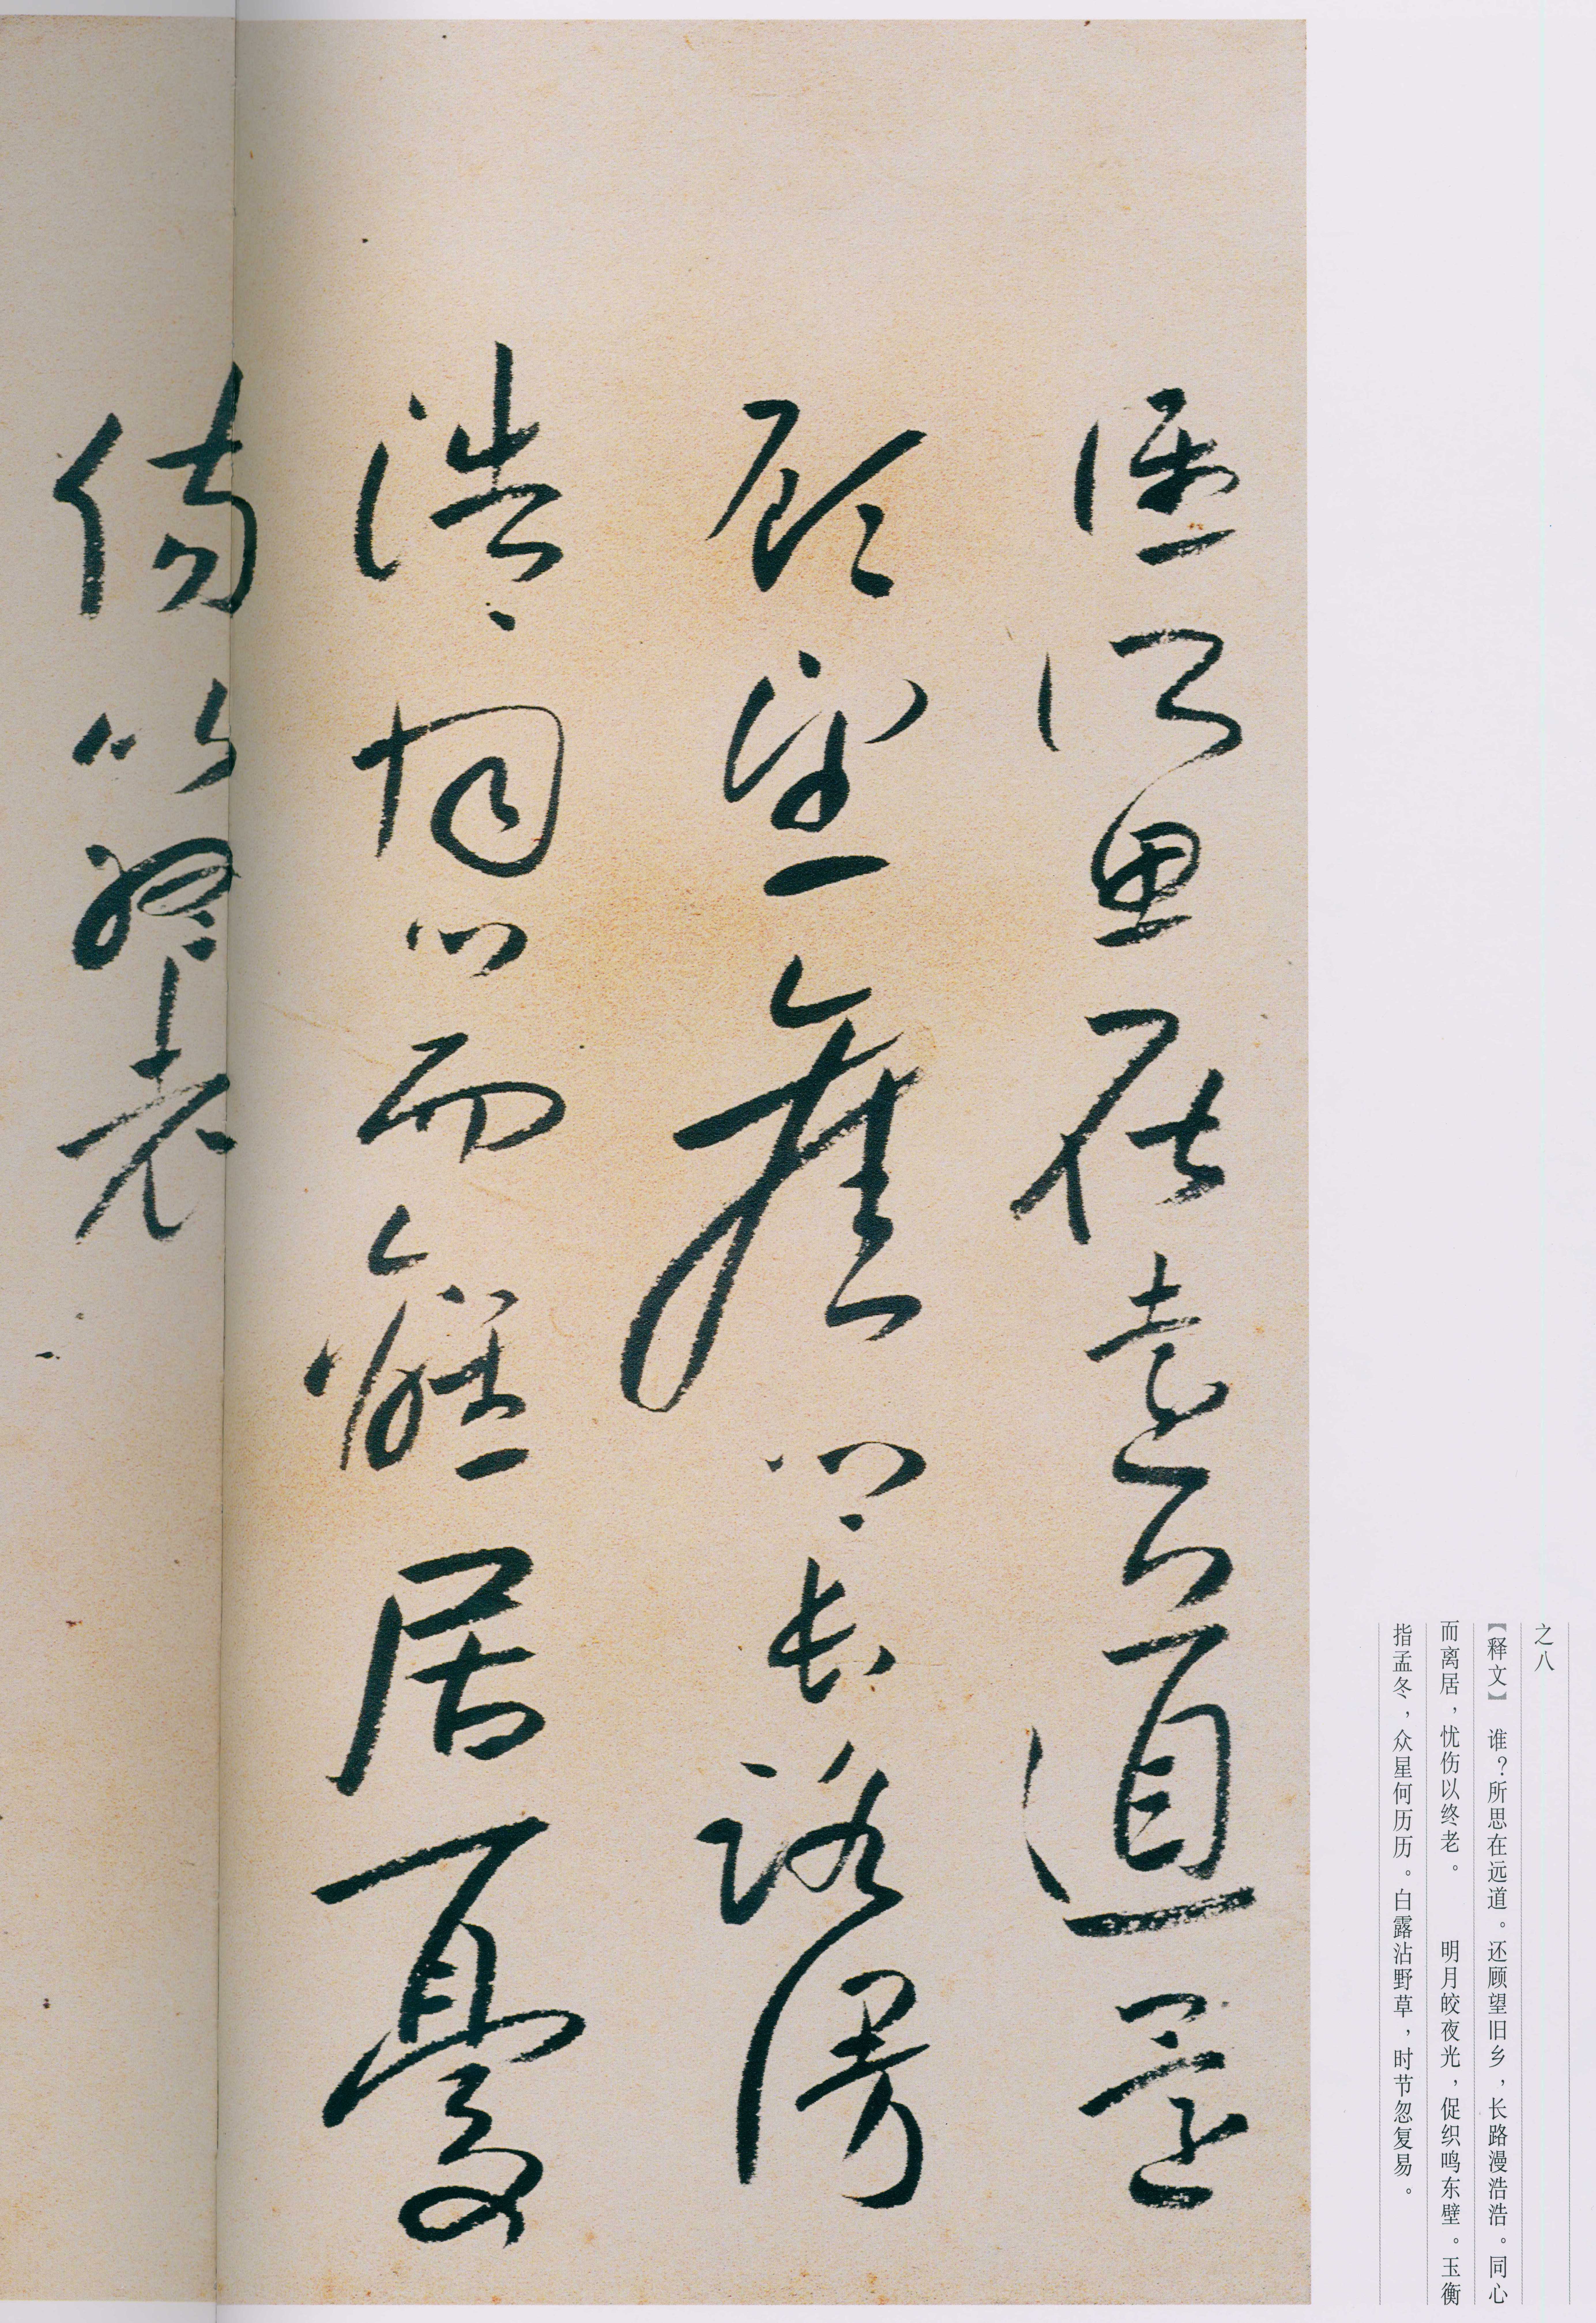 之八
【释文】 谁？所思在远道。还顾望旧乡，长路漫浩浩。同心
而离居，忧伤以终老。 明月皎夜光，促织鸣东壁。玉衡
指孟冬，众星何历历。白露沾野草，时节忽复易。
誰所思在遠道還
顧望舊鄉長路漫
浩〻同心而離居憂
傷以終老